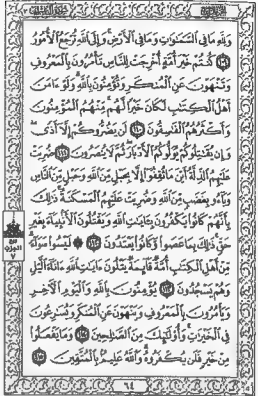 وَلِلَّهِ مَا فِي السَّمَٰوَٰتِ وَمَا فِي الْأَرْضِ وَإِلَى اللَّهِ تُرْجَعُ الْأُمُورُ
١٠٩ كُنتُمْ خَيْرَ أُمَّةٍ أُخْرِجَتْ لِلنَّاسِ تَأْمُرُونَ بِالْمَعْرُوفِ
وَتَنْهَوْنَ عَنِ الْمُنكَرِ وَتُؤْمِنُونَ بِاللَّهِ وَلَوْ ءَامَنَ
أَهْلُ الْكِتَٰبِ لَكَانَ خَيْرًا لَّهُم مِّنْهُمُ الْمُؤْمِنُونَ
وَأَكْثَرُهُمُ الْفَٰسِقُونَ ١١٠ لَن يَضُرُّوكُمْ إِلَّا أَذًى
وَإِن يُقَٰتِلُوكُمْ يُوَلُّوكُمُ الْأَدْبَارَ ثُمَّ لَا يُنصَرُونَ ١١١ ضُرِبَتْ
عَلَيْهِمُ الذِّلَّةُ أَيْنَ مَا ثُقِفُوا إِلَّا بِحَبْلٍ مِّنَ اللَّهِ وَحَبْلٍ مِّنَ النَّاسِ
وَبَاءُو بِغَضَبٍ مِّنَ اللَّهِ وَضُرِبَتْ عَلَيْهِمُ الْمَسْكَنَةُ ذَٰلِكَ
بِأَنَّهُمْ كَانُوا يَكْفُرُونَ بِـَٔايَٰتِ اللَّهِ وَيَقْتُلُونَ الْأَنۢبِيَاءَ بِغَيْرِ
حَقٍّ ذَٰلِكَ بِمَا عَصَوا وَّكَانُوا يَعْتَدُونَ ١١٢ ۞ لَيْسُوا سَوَاءً
مِّنْ أَهْلِ الْكِتَٰبِ أُمَّةٌ قَائِمَةٌ يَتْلُونَ ءَايَٰتِ اللَّهِ ءَانَاءَ الَّيْلِ
وَهُمْ يَسْجُدُونَ ١١٣ يُؤْمِنُونَ بِاللَّهِ وَالْيَوْمِ الْءَاخِرِ
وَيَأْمُرُونَ بِالْمَعْرُوفِ وَيَنْهَوْنَ عَنِ الْمُنكَرِ وَيُسَٰرِعُونَ
فِي الْخَيْرَٰتِ وَأُولَٰئِكَ مِنَ الصَّٰلِحِينَ ١١٤ وَمَا يَفْعَلُوا
مِنْ خَيْرٍ فَلَن يُكْفَرُوهُ وَاللَّهُ عَلِيمٌ بِالْمُتَّقِينَ ١١٥
٦٤